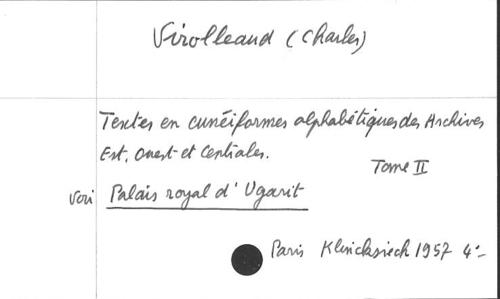 Virolleaud (Charles)
Textes en cunéiformes alphabétiques des Archives
Est, Ouest et Centrales.
Tome II
Voir Palais royal d'Ugarit
Paris Klincksieck 1957 4°-